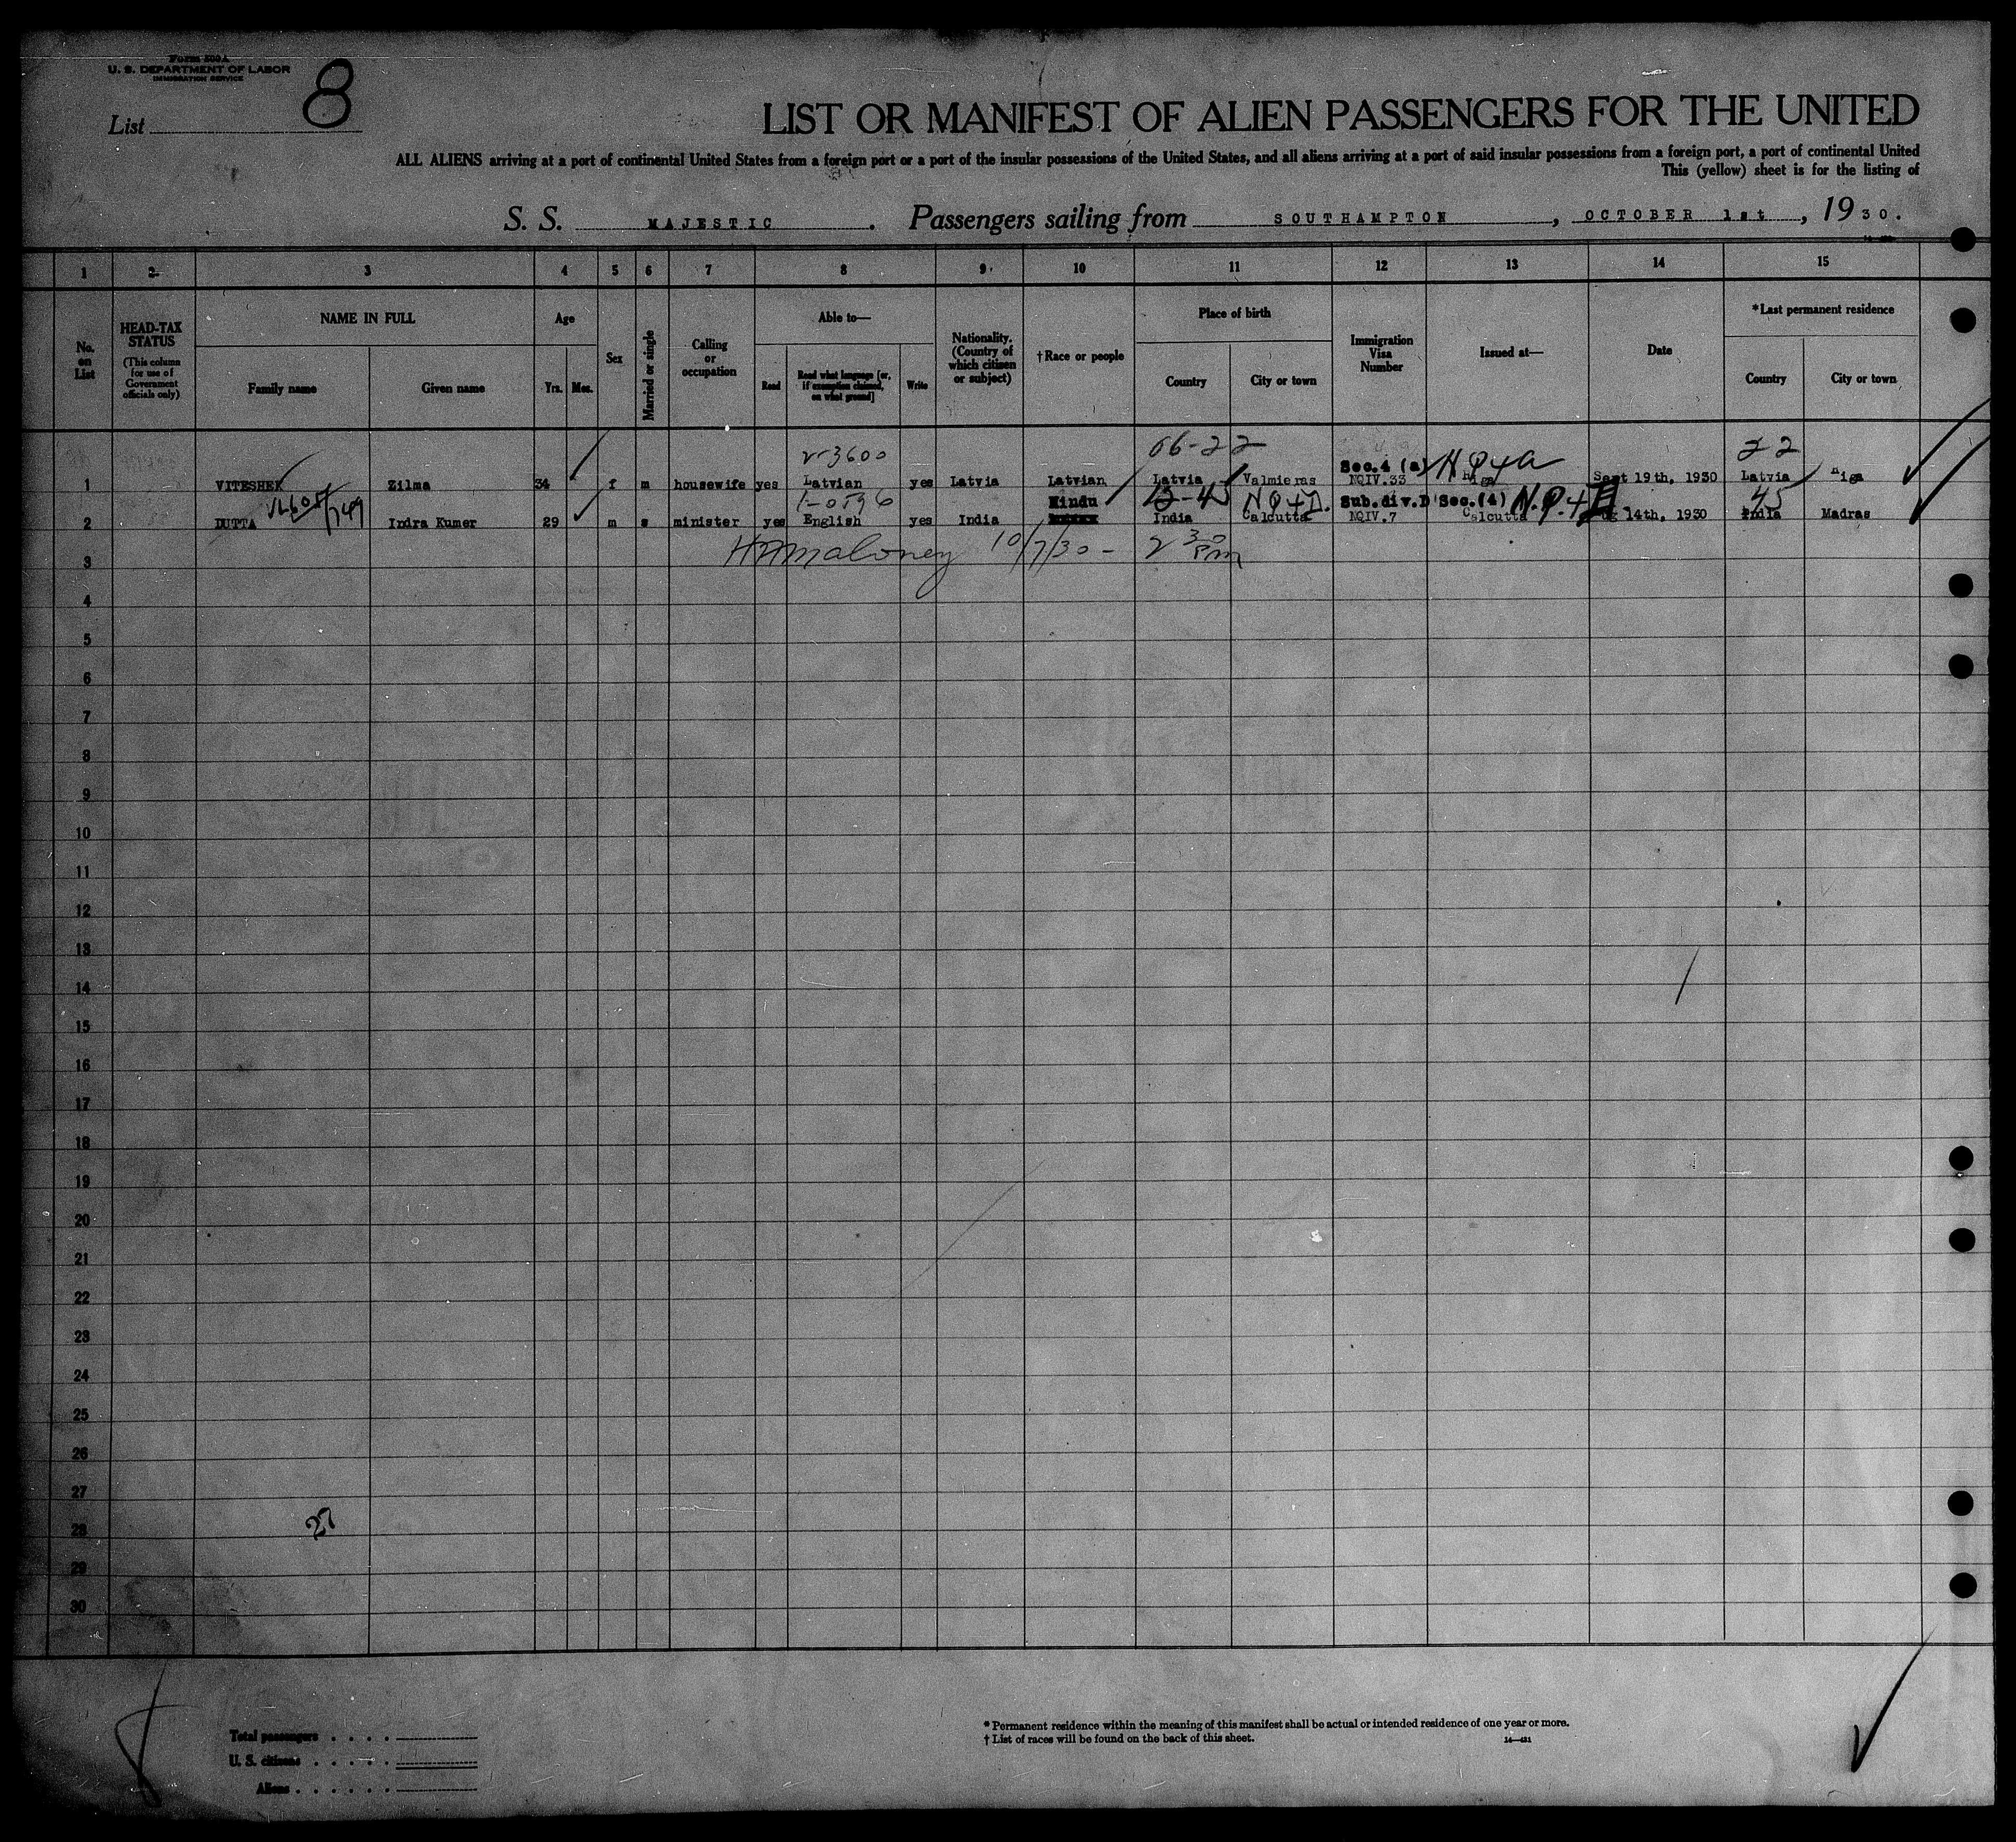 Form 500 A
U. S. DEPARTMENT OF LABOR
IMMIGRATION SERVICE
List 8
LIST OR MANIFEST OF ALIEN PASSENGERS FOR THE UNITED
ALL ALIENS arriving at a port of continental United States from a foreign port or a port of the insular possessions of the United States, and all aliens arriving at a port of said insular possessions from a foreign port, a port of continental United
This (yellow) sheet is for the listing of
S. S. MAJESTIC. Passengers sailing from SOUTHAMPTON, OCTOBER 1st, 1930.
1 2 3 4 5 6 7 8 9 10 11 12 13 14 15
No. on List
HEAD-TAX STATUS (This column for use of Government officials only)
NAME IN FULL
Family name Given name
Age
Yrs. Mos.
Sex
Married or single
Calling or occupation
Able to—
Read Read what language [or, if exemption claimed, on what ground] Write
Nationality. (Country of which citizen or subject)
†Race or people
Place of birth
Country City or town
Immigration Visa Number
Issued at—
Date
*Last permanent residence
Country City or town
V-3600 06-22 22
Sec.4 (a) N.Q4a
1 VITESHEK Zilma 34 f m housewife yes Latvian yes Latvia Latvian Latvia Valmieras NQIV.33 Riga Sept 19th, 1930 Latvia Riga
1-0596 Hindu 12-45 N.Q4D. Sub.div.D Sec.(4) N.Q.4 45
2 DUTTA Indra Kumer 29 m s minister yes English yes India India Calcutta NQIV.7 Calcutta 14th, 1930 India Madras
3 Maloney 10/7/30 - 2 30 Pm
4
5
6
7
8
9
10
11
12
13
14
15
16
17
18
19
20
21
22
23
24
25
26
27
28 27
29
30
Total passengers . . . .
U. S. citizens . . . . .
Aliens . . . . . .
* Permanent residence within the meaning of this manifest shall be actual or intended residence of one year or more.
† List of races will be found on the back of this sheet.
14—431